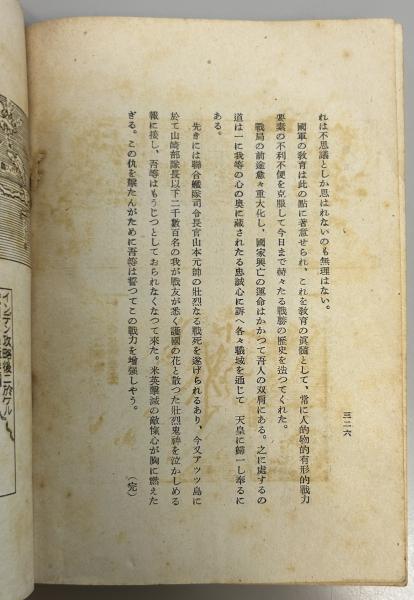 れは不思議としか思はれないのも無理はない。
國軍の教育は此の點に著意せられ、これを教育の眞髓として、常に人的物的有形的戰力
要素の不利不便を克服して今日まで赫々たる戰勝の歷史を造つてくれた。
戰局の前途愈々重大化し、國家興亡の運命はかかつて吾人の双肩にある。之に處するの
道は一に我等の心の奥に藏されたる忠誠心に訴へ各々職域を通じて 天皇に歸一し奉るに
ある。
先きには聯合艦隊司令長官山本元帥の壯烈なる戰死を遂げられるあり、今又アッツ島に
於て山崎部隊長以下二千數百名の我が戰友が悉く護國の花と散つた壯烈鬼神を泣かしめる
報に接し、吾等はもうじつとしておられなくなつて來た。米英擊滅の敵愾心が胸に燃えた
ぎる。この仇を酬たんがために吾等は誓つてこの戰力を增强しやう。
(完)
三二六
インデン攻略後ニ於ケル